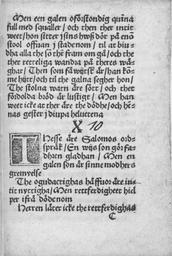 Men een galen oförstondig quinna
full med squaller / och then ther intit
weet / hon sitter istins hwss dör på enö
stool offuan i stadenom / til at biu=
dha alla them som ther fram gå / och the
ther retteliga wandra på theres wä=
ghar / Then som fåwijsk är / han kom=
me hijt / och til the galna segher hon /
The stolna warn äre sött / och thet
förholda bröd är lustigt / Men han
weet icke at ther äre the dödhe / och hen=
nes gester j diupa heluitena
X 10
Thesse äre Salomos ord=
språk / En wijs son gör fa=
dhen gladhan / Men en
galen son är sinne moders
gremelse
The ogudactighas håffuor äre in=
tit nyttigh / Men rettferdighet hiel
per ifrå dödenom
Herren låter icke the rettferdighas
C